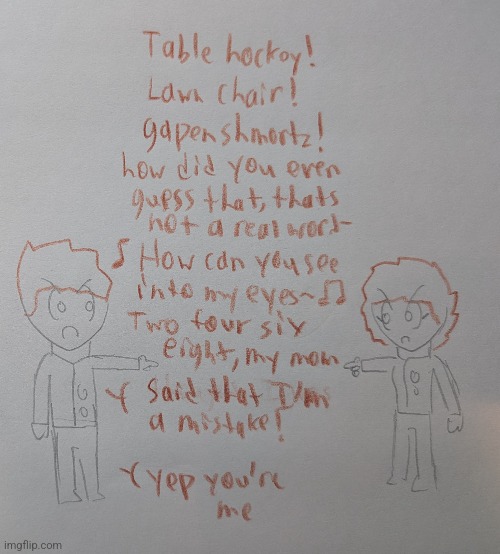 Table hockoy!
Lawn chair!
gapenshmortz!
how did you even
guess that, thats
not a real word-
♪ How can you see
into my eyes~♫
Two four six
eight, my mom
Said that I'm
a mistake!
yep you're
me
imgflip.com